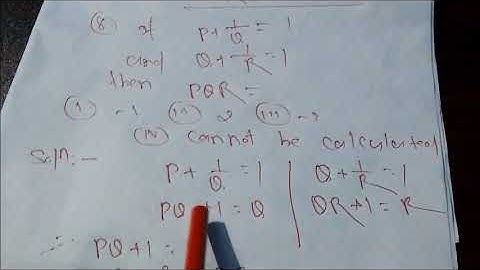 ⑧ if P + 1/Q = 1
and Q + 1/R = 1
then PQR =
(i) -1 (ii) 2 (iii) -2
(iv) cannot be calculated
Soln:-
P + 1/Q = 1 | Q + 1/R = 1
PQ + 1 = Q | QR + 1 = R
∴ PQ + 1 =